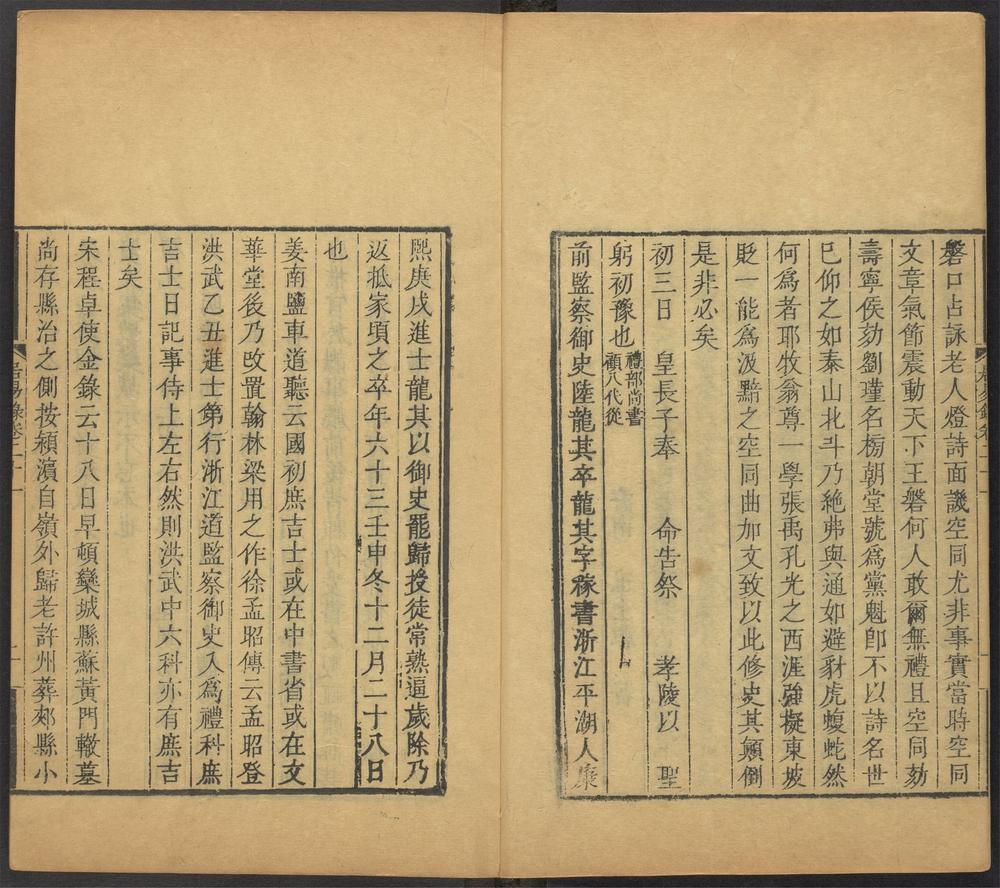 磐口占詠老人燈詩面譏空同尤非事實當時空同
文章氣節震動天下王磐何人敢爾無禮且空同劾
壽寧侯劾劉瑾名榜朝堂號為黨魁卽不以詩名世
巳仰之如泰山北斗乃絶弗與通如避豺虎蝮蛇然
何為者耶牧翁尊一學張禹孔光之西涯強擬東坡
貶一能為汲黯之空同曲加文致以此修史其顛倒
是非必矣
初三日　皇長子奉　命告祭　孝陵以　聖
躬初豫也禮部尚書顧八代從
前監察御史陸龍其卒龍其字稼書浙江平湖人康
居易錄卷二十一
熙庚戌進士龍其以御史罷歸授徒常熟逼歲除乃
返抵家頃之卒年六十三壬申冬十二月二十八日
也
姜南鹽車道聽云國初庶吉士或在中書省或在文
華堂後乃改置翰林梁用之作徐孟昭傳云孟昭登
洪武乙丑進士第行浙江道監察御史入為禮科庶
吉士日記事侍上左右然則洪武中六科亦有庶吉
士矣
宋程卓使金錄云十八日早頓欒城縣蘇黃門轍墓
尚存縣治之側按潁濵自嶺外歸老許州葬郟縣小